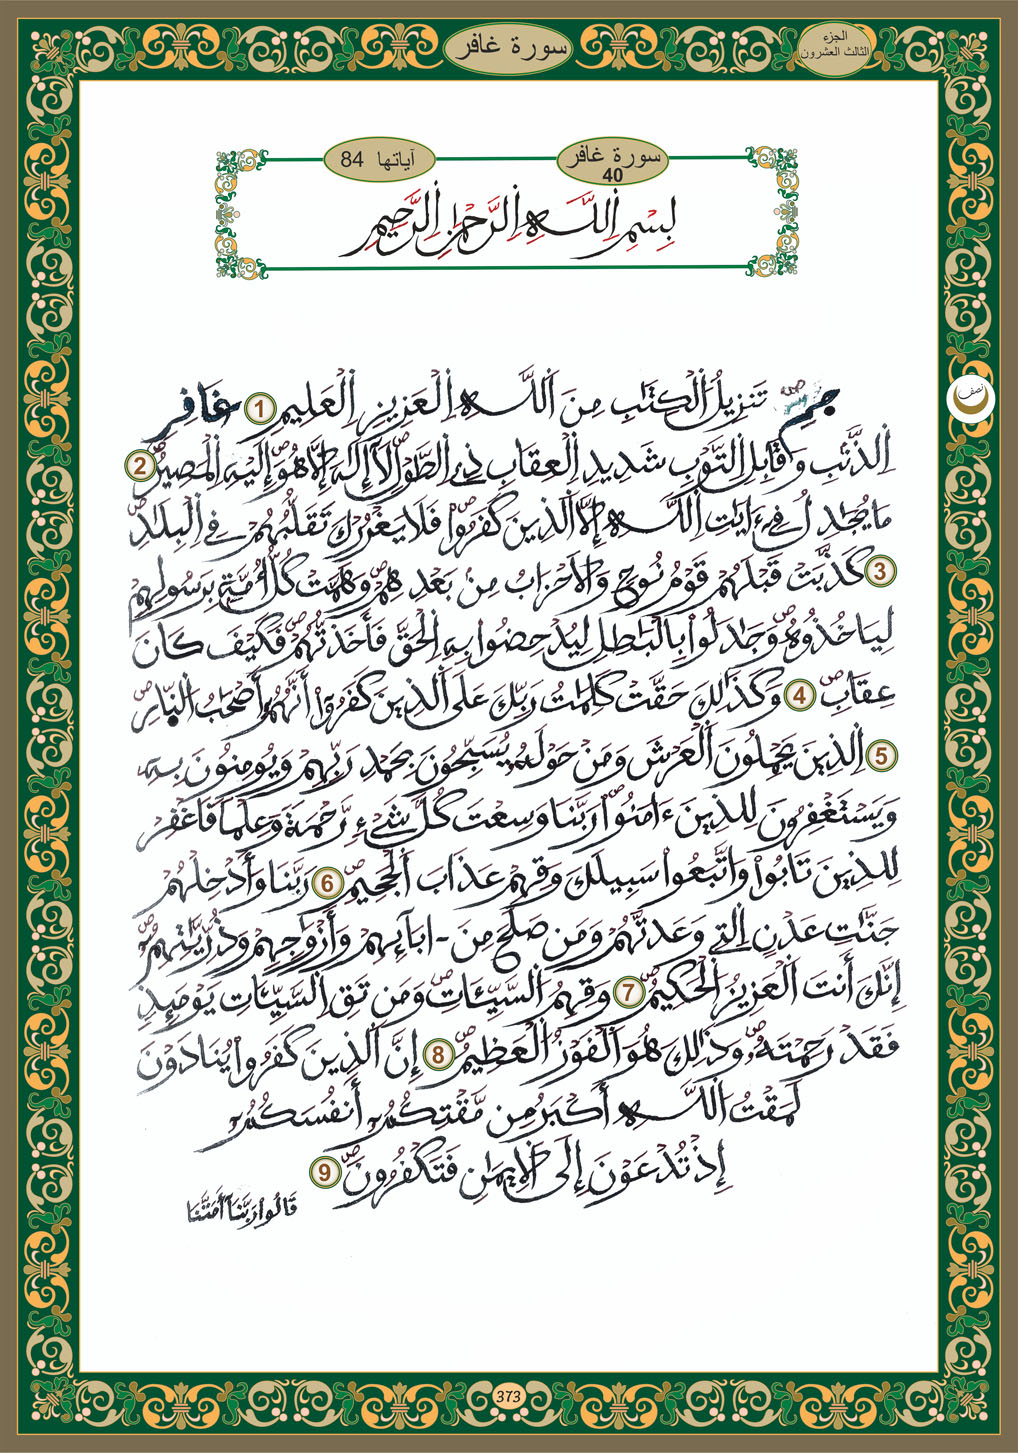 الجزء
الثالث العشرون
سورة غافر
سورة غافر
40
آياتها 84
بِسْمِ اِللَّهِ اِلرَّحْمَٰنِ اِلرَّحِيمِ
نصف
حَمِٓ تَنزِيلُ اُلْكِتَٰبِ مِنَ اَللَّهِ اِلْعَزِيزِ اِلْعَلِيمِ 1 غَافِرِ
اِلذَّنۢبِ وَقَابِلِ اِلتَّوْبِ شَدِيدِ اِلْعِقَابِ ذِے اِلطَّوْلِ لَآ إِلَٰهَ إِلَّا هُوَ إِلَيْهِ اِلْمَصِيرُ 2
مَا يُجَٰدِلُ فِےٓ ءَايَٰتِ اِللَّهِ إِلَّا اَلذِينَ كَفَرُواْ فَلَا يَغْرُرْكَ تَقَلُّبُهُمْ فِے اِلْبِلَٰدِ
3 كَذَّبَتْ قَبْلَهُمْ قَوْمُ نُوحٍ وَالَاحْزَابُ مِنۢ بَعْدِهِمْ وَهَمَّتْ كُلُّ أُمَّةِۢ بِرَسُولِهِمْ
لِيَاخُذُوهُ وَجَٰدَلُواْ بِالْبَٰطِلِ لِيُدْحِضُواْ بِهِ اِلْحَقَّ فَأَخَذتُّهُمْ فَكَيْفَ كَانَ
عِقَابِ 4 وَكَذَٰلِكَ حَقَّتْ كَلِمَٰتُ رَبِّكَ عَلَى اَلذِينَ كَفَرُوٓاْ أَنَّهُمُۥٓ أَصْحَٰبُ اُلنّ۪ارِ
5 اِلذِينَ يَحْمِلُونَ اَلْعَرْشَ وَمَنْ حَوْلَهُۥ يُسَبِّحُونَ بِحَمْدِ رَبِّهِمْ وَيُومِنُونَ بِهِۦ
وَيَسْتَغْفِرُونَ لِلذِينَ ءَامَنُواْ رَبَّنَا وَسِعْتَ كُلَّ شَےْءٖ رَّحْمَةٗ وَعِلْماٗ فَاغْفِرْ
لِلذِينَ تَابُواْ وَاتَّبَعُواْ سَبِيلَكَ وَقِهِمْ عَذَابَ اَلْجَحِيمِ 6 رَبَّنَا وَأَدْخِلْهُمْ
جَنَّٰتِ عَدْنٍ اِلتِے وَعَدتَّهُمْ وَمَن صَلَحَ مِنَ ـ ابَآئِهِمْ وَأَزْوَٰجِهِمْ وَذُرِّيَّٰتِهِمُۥٓ
إِنَّكَ أَنتَ اَلْعَزِيزُ اُلْحَكِيمُ 7 وَقِهِمُ اُلسَّيِّـَٔاتِ وَمَن تَقِ اِلسَّيِّـَٔاتِ يَوْمَئِذٖ
فَقَدْ رَحِمْتَهُۥ وَذَٰلِكَ هُوَ اَلْفَوْزُ اُلْعَظِيمُ 8 إِنَّ اَلذِينَ كَفَرُواْ يُنَادَوْنَ
لَمَقْتُ اُللَّهِ أَكْبَرُ مِن مَّقْتِكُمُۥٓ أَنفُسَكُمُۥٓ
إِذْ تُدْعَوْنَ إِلَى اَلِايمَٰنِ فَتَكْفُرُونَ 9
قَالُواْ رَبَّنَآ أَمَتَّنَا
373